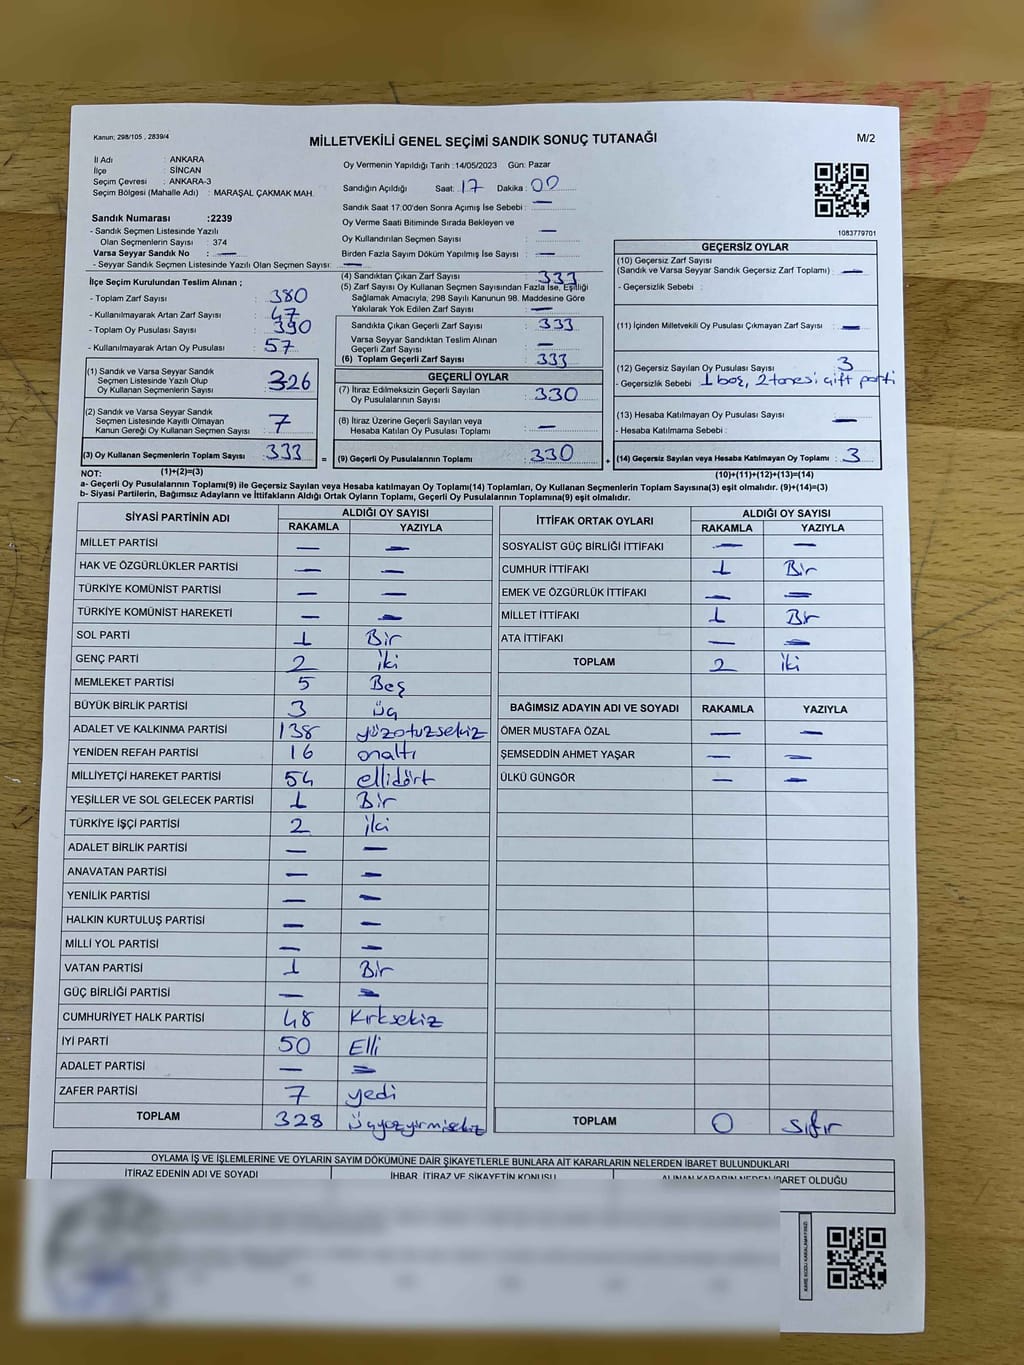 Kanun; 298/105 , 2839/4
MİLLETVEKİLİ GENEL SEÇİMİ SANDIK SONUÇ TUTANAĞI
M/2
İl Adı : ANKARA
İlçe : SİNCAN
Seçim Çevresi : ANKARA-3
Seçim Bölgesi (Mahalle Adı) : MARAŞAL ÇAKMAK MAH.
Sandık Numarası :2239
- Sandık Seçmen Listesinde Yazılı
Olan Seçmenlerin Sayısı : 374
Varsa Seyyar Sandık No : —
- Seyyar Sandık Seçmen Listesinde Yazılı Olan Seçmen Sayısı: —
İlçe Seçim Kurulundan Teslim Alınan ;
- Toplam Zarf Sayısı : 380
- Kullanılmayarak Artan Zarf Sayısı : 47
- Toplam Oy Pusulası Sayısı : 390
- Kullanılmayarak Artan Oy Pusulası : 57
(1) Sandık ve Varsa Seyyar Sandık
Seçmen Listesinde Yazılı Olup
Oy Kullanan Seçmenlerin Sayısı : 326
(2) Sandık ve Varsa Seyyar Sandık
Seçmen Listesinde Kayıtlı Olmayan
Kanun Gereği Oy Kullanan Seçmen Sayısı : 7
(3) Oy Kullanan Seçmenlerin Toplam Sayısı : 333
Oy Vermenin Yapıldığı Tarih :14/05/2023 Gün: Pazar
Sandığın Açıldığı Saat: 17 Dakika : 00
Sandık Saat 17:00'den Sonra Açımış İse Sebebi : —
Oy Verme Saati Bitiminde Sırada Bekleyen ve
Oy Kullandırılan Seçmen Sayısı : —
Birden Fazla Sayım Döküm Yapılmış İse Sayısı : —
(4) Sandıktan Çıkan Zarf Sayısı : 333
(5) Zarf Sayısı Oy Kullanan Seçmen Sayısından Fazla İse, Eşitliği
Sağlamak Amacıyla, 298 Sayılı Kanunun 98. Maddesine Göre
Yakılarak Yok Edilen Zarf Sayısı : —
Sandıkta Çıkan Geçerli Zarf Sayısı : 333
Varsa Seyyar Sandıktan Teslim Alınan
Geçerli Zarf Sayısı : —
(6) Toplam Geçerli Zarf Sayısı : 333
GEÇERLİ OYLAR
(7) İtiraz Edilmeksizin Geçerli Sayılan
Oy Pusulalarının Sayısı : 330
(8) İtiraz Üzerine Geçerli Sayılan veya
Hesaba Katılan Oy Pusulası Toplamı : —
= (9) Geçerli Oy Pusulalarının Toplamı : 330 +
1083779701
GEÇERSİZ OYLAR
(10) Geçersiz Zarf Sayısı
(Sandık ve Varsa Seyyar Sandık Geçersiz Zarf Toplamı) : —
- Geçersizlik Sebebi :
(11) İçinden Milletvekili Oy Pusulası Çıkmayan Zarf Sayısı : —
(12) Geçersiz Sayılan Oy Pusulası Sayısı : 3
- Geçersizlik Sebebi : 1 boş, 2 tanesi çift parti
(13) Hesaba Katılmayan Oy Pusulası Sayısı : —
- Hesaba Katılmama Sebebi :
(14) Geçersiz Sayılan veya Hesaba Katılmayan Oy Toplamı : 3
NOT: (1)+(2)=(3)
(10)+(11)+(12)+(13)=(14)
a- Geçerli Oy Pusulalarının Toplamı(9) ile Geçersiz Sayılan veya Hesaba Katılmayan Oy Toplamı(14) Toplamları, Oy Kullanan Seçmenlerin Toplam Sayısına(3) eşit olmalıdır. (9)+(14)=(3)
b- Siyasi Partilerin, Bağımsız Adayların ve İttifakların Aldığı Ortak Oyların Toplamı, Geçerli Oy Pusulalarının Toplamına(9) eşit olmalıdır.
SİYASİ PARTİNİN ADI ALDIĞI OY SAYISI
RAKAMLA YAZIYLA
MİLLET PARTİSİ — —
HAK VE ÖZGÜRLÜKLER PARTİSİ — —
TÜRKİYE KOMÜNİST PARTİSİ — —
TÜRKİYE KOMÜNİST HAREKETİ — —
SOL PARTİ 1 Bir
GENÇ PARTİ 2 iki
MEMLEKET PARTİSİ 5 Beş
BÜYÜK BİRLİK PARTİSİ 3 üç
ADALET VE KALKINMA PARTİSİ 138 yüzotuzsekiz
YENİDEN REFAH PARTİSİ 16 onaltı
MİLLİYETÇİ HAREKET PARTİSİ 54 ellidört
YEŞİLLER VE SOL GELECEK PARTİSİ 1 Bir
TÜRKİYE İŞÇİ PARTİSİ 2 iki
ADALET BİRLİK PARTİSİ — —
ANAVATAN PARTİSİ — —
YENİLİK PARTİSİ — —
HALKIN KURTULUŞ PARTİSİ — —
MİLLİ YOL PARTİSİ — —
VATAN PARTİSİ 1 Bir
GÜÇ BİRLİĞİ PARTİSİ — —
CUMHURİYET HALK PARTİSİ 48 Kırksekiz
İYİ PARTİ 50 Elli
ADALET PARTİSİ — —
ZAFER PARTİSİ 7 yedi
TOPLAM 328 üçyüzyirmisekiz
İTTİFAK ORTAK OYLARI ALDIĞI OY SAYISI
RAKAMLA YAZIYLA
SOSYALİST GÜÇ BİRLİĞİ İTTİFAKI — —
CUMHUR İTTİFAKI 1 Bir
EMEK VE ÖZGÜRLÜK İTTİFAKI — —
MİLLET İTTİFAKI 1 Bir
ATA İTTİFAKI — —
TOPLAM 2 iki
BAĞIMSIZ ADAYIN ADI VE SOYADI RAKAMLA YAZIYLA
ÖMER MUSTAFA ÖZAL — —
ŞEMSEDDİN AHMET YAŞAR — —
ÜLKÜ GÜNGÖR — —
TOPLAM 0 sıfır
OYLAMA İŞ VE İŞLEMLERİNE VE OYLARIN SAYIM DÖKÜMÜNE DAİR ŞİKAYETLERLE BUNLARA AİT KARARLARIN NELERDEN İBARET BULUNDUKLARI
İTİRAZ EDENİN ADI VE SOYADI İHBAR, İTİRAZ VE ŞİKAYETİN KONUSU ALINAN KARARIN NEDEN İBARET OLDUĞU